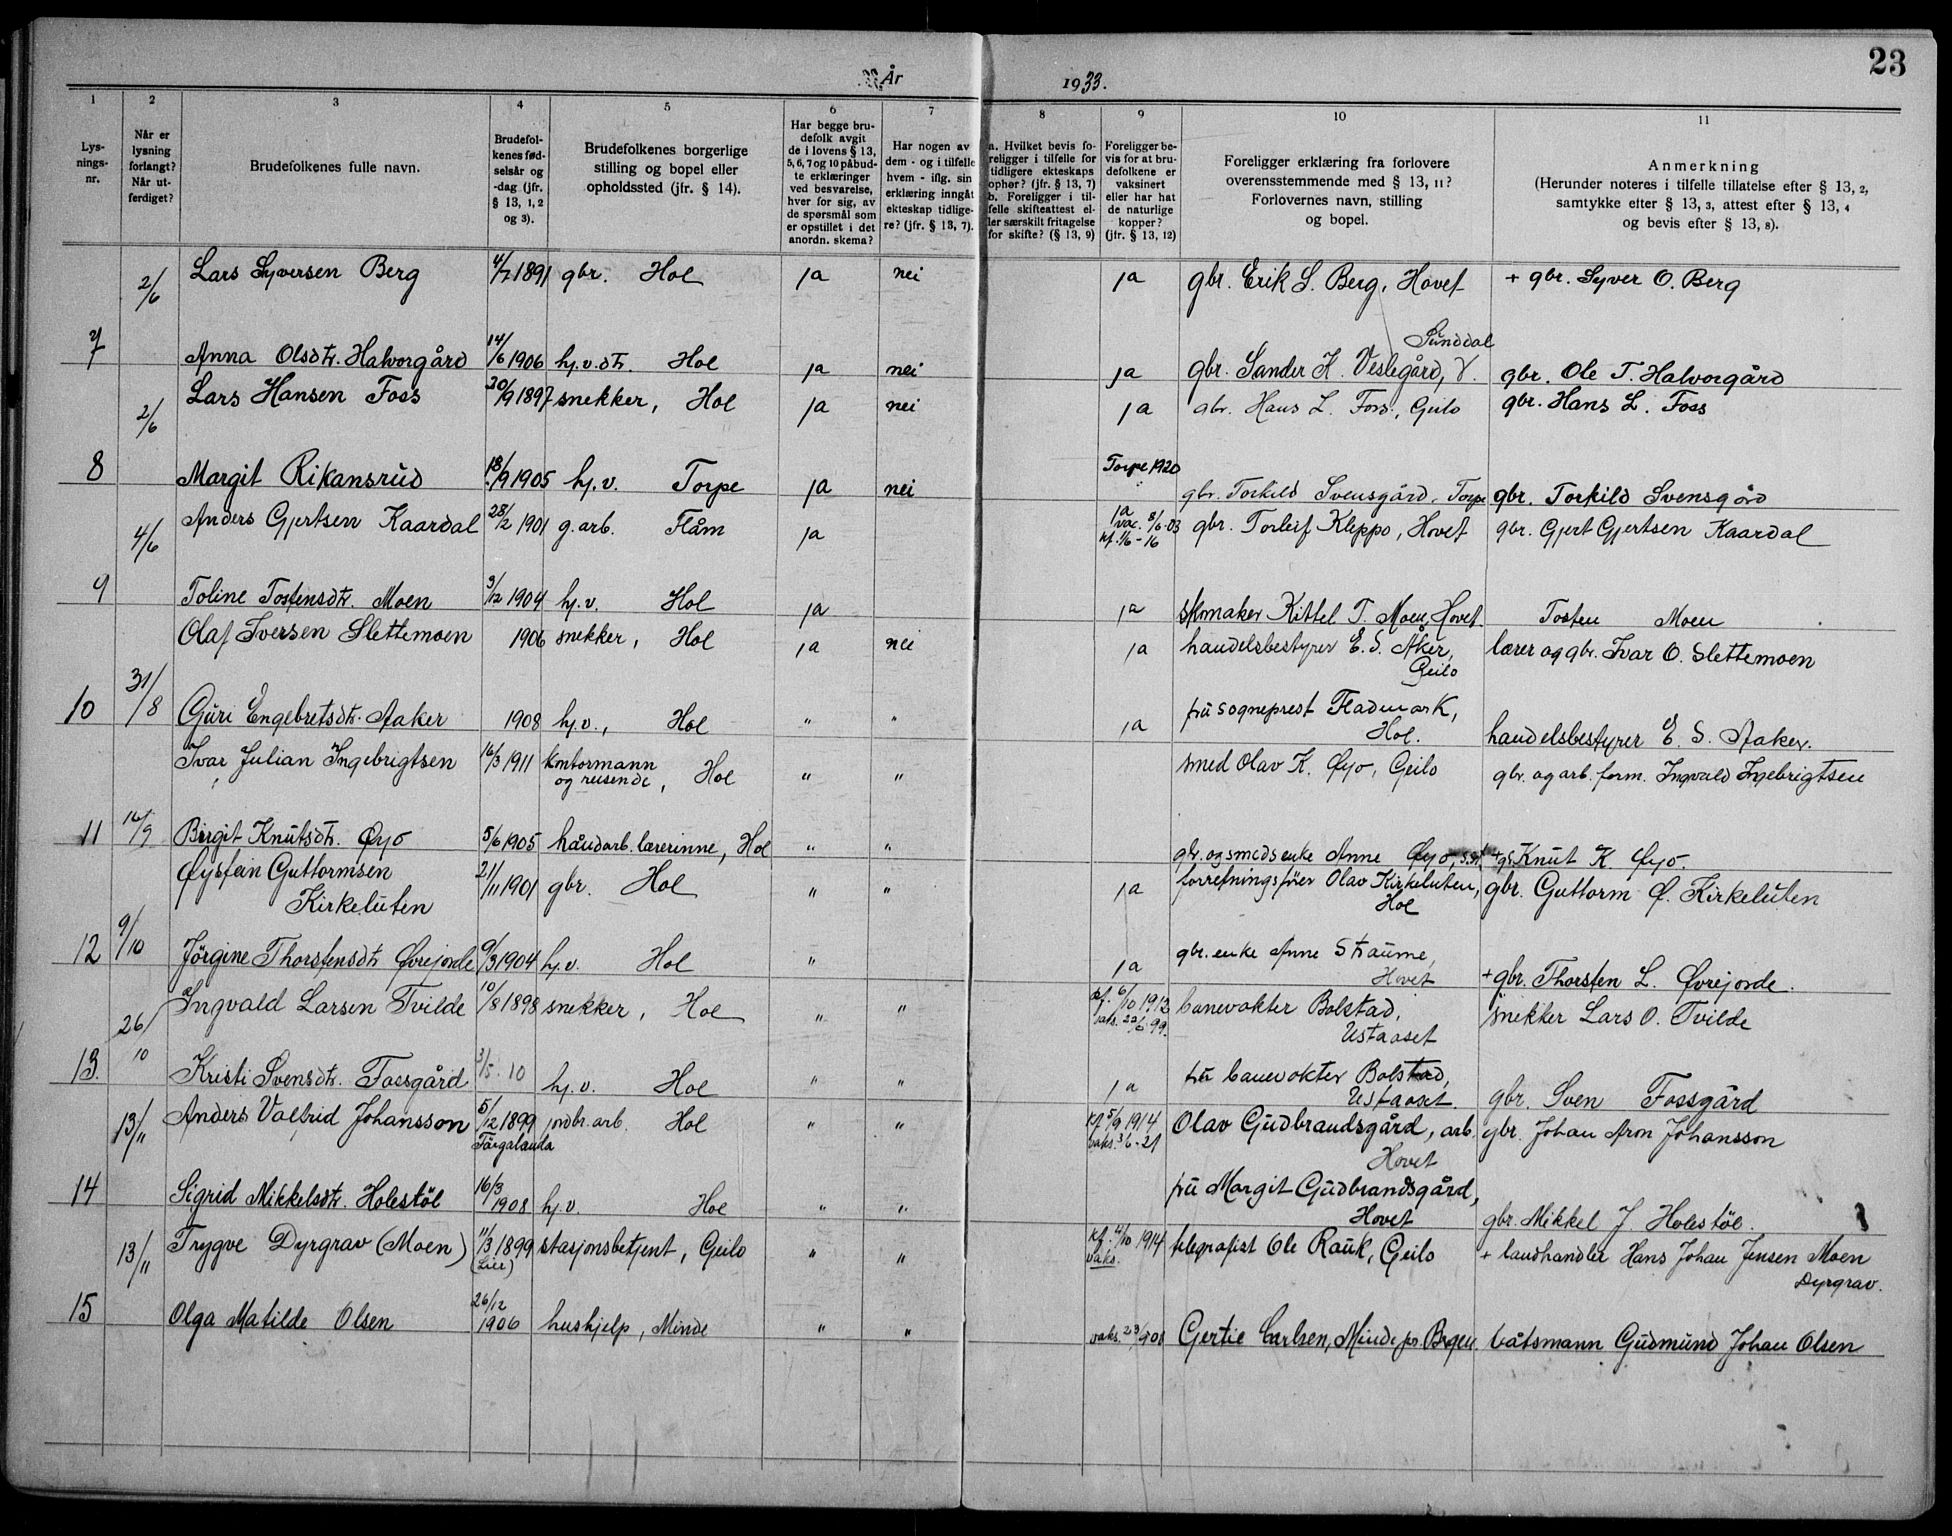 23
År 1933.
1 2 3 4 5 6 7 8 9 10 11
Lysningsnr.
Når er lysning forlangt? Når utferdiget?
Brudefolkenes fulle navn.
Brudefolkenes fødselsår og -dag (jfr. § 13, 1, 2 og 3).
Brudefolkenes borgerlige stilling og bopel eller opholdssted (jfr. § 14).
Har begge brudefolk avgit de i lovens § 13, 5, 6, 7 og 10 påbudte erklæringer ved besvarelse, hver for sig, av de spørsmål som er opstillet i det anordn. skema?
Har nogen av dem - og i tilfelle hvem - iflg. sin erklæring inngått ekteskap tidligere? (jfr. § 13, 7).
a. Hvilket bevis foreligger i tilfelle for tidligere ekteskaps ophør? (jfr. § 13, 7) b. Foreligger i tilfelle skifteattest eller særskilt fritagelse for skifte? (§ 13, 9)
Foreligger bevis for at brudefolkene er vaksinert eller har hat de naturlige kopper? (jfr. § 13, 12)
Foreligger erklæring fra forlovere overensstemmende med § 13, 11? Forlovernes navn, stilling og bopel.
Anmerkning (Herunder noteres i tilfelle tillatelse efter § 13, 2, samtykke efter § 13, 3, attest efter § 13, 4 og bevis efter § 13, 8).
2/6 Lars Syversen Berg 4/7 1891 gbr. Hol ja nei ja gbr. Erik S. Berg, Hovet + gbr. Syver O. Berg
Sunddal
7 Anna Olsdtr. Halvorgård 14/6 1906 hj.v.dtr. Hol ja nei ja gbr. Sander K. Veslegård, gbr. Ole T. Halvorgård
2/6 Lars Hansen Foss 30/9 1897 snekker, Hol ja nei ja gbr. Hans L. Foss, Geilo gbr. Hans L. Foss
Torpe 1920
8 Margit Rikansrud 18/9 1905 hj.v. Torpe ja nei gbr. Torkild Svensgård, Torpe gbr. Torkild Svensgård
4/6 Anders Gjertsen Kaardal 28/2 1901 g.arb. Flåm ja ja vac. 8/6-03 kf. 1/6-16 gbr. Torleif Kleppo, Hovet gbr. Gjert Gjertsen Kaardal
9 Toline Tostensdtr. Moen 3/12 1904 hj.v. Hol ja ja skomaker Kittel T. Moen, Hovet Tosten Moen
Olaf Iversen Slettemoen 1906 snekker, Hol ja nei ja handelsbestyrer E. S. Åker, Geilo lærer og gbr. Ivar O. Slettemoen
10 31/8 Guri Engebretsdtr. Aaker 1908 hj.v., Hol " " ja fru sogneprest Fladmark, Hol. handelsbestyrer E. S. Aaker.
Ivar Julian Ingebrigtsen 16/3 1911 kontormann og reisende, Hol " " smed Olav K. Øyo, Geilo gbr. og arb. form. Ingvald Ingebrigtsen
11 16/9 Birgit Knutsdtr. Øyo 5/6 1905 håndarb. lærerinne, Hol " " gbr. og smeds enke Anne Øyo, s.st. + gb Knut K. Øyo.
Øystein Guttormsen Kirkeluten 21/11 1901 gbr. Hol " " ja forretningsfører Olav Kirkeluten, Hol gbr. Guttorm Ø. Kirkeluten
12 9/10 Jörgine Thorstensdtr. Øvrejorde 9/3 1904 hj.v. Hol " ja gbr. enke Anne Straume, Hovet + gbr. Thorsten L. Øvrejorde.
26/10 Ingvald Larsen Tvilde 10/8 1898 snekker, Hol " " kf. 6/10 1912 vaks. 22/6 99. banevokter Bolstad, Ustaoset snekker Lars O. Tvilde
13. Kristi Svensdtr. Fossgård 31/5-10 hj.v. Hol " " ja fru banevokter Bolstad, Ustaoset. gbr. Sven Fossgård
13/11 Anders Valfrid Johansson 5/12 1899 Färgalanda jordbr. arb. Hol " " kf 5/9 1914 vaks. 3/6-21 Olav Gudbrandsgård, arb. Hovet gbr. Johan Aron Johansson
14 Sigrid Mikkelsdtr. Holestöl 16/3 1908 hj.v. Hol " " fru Margit Gudbrandsgård, Hovet gbr. Mikkel J Holestöl.
13/11 Trygve Dyrgrav (Moen) 11/3 1899 (Lier) stasjonsbetjent, Geilo " " kf. 4/10 1914 vaks. telegrafist Ole Rauk, Geilo + landhandler Hans Johan Jensen Moen Dyrgrav.
15 Olga Matilde Olsen 26/12 1906 hushjelp, Minde " " vaks. Gertie Carlsen, Minde pr. Bergen. båtsmann Gudmund Johan Olsen